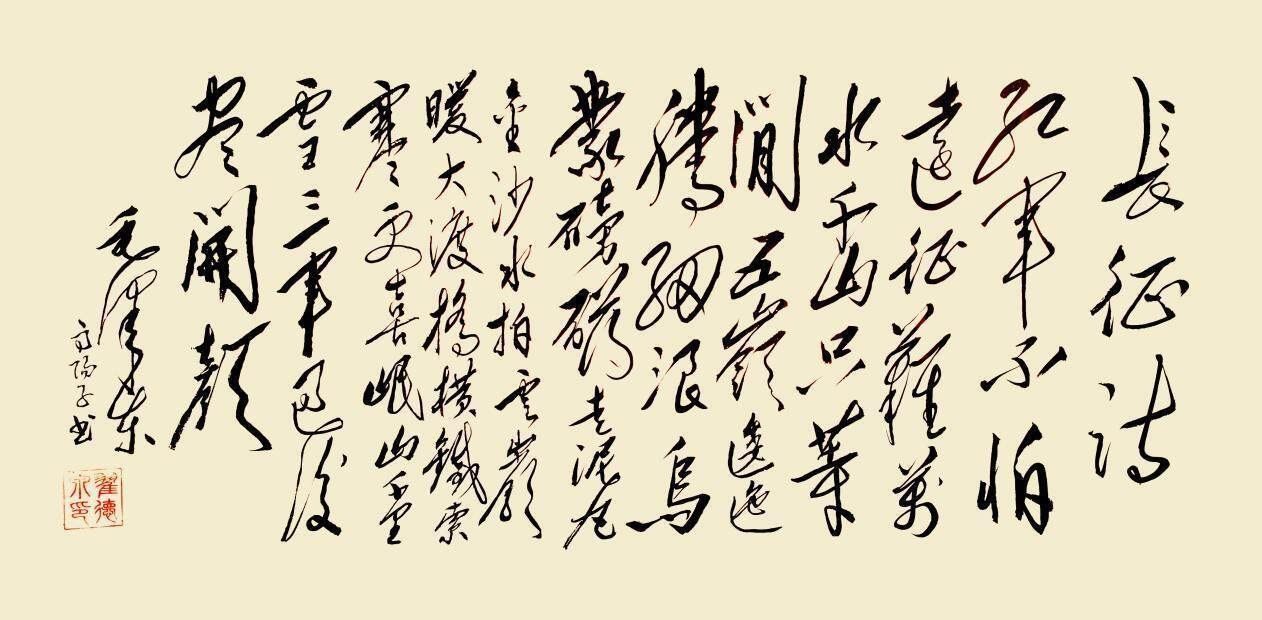 長征诗
红軍不怕
遠征難萬
水千山只等
閒五嶺逶迤
騰細浪烏
蒙磅礴走泥丸
金沙水拍雲巖
暖大渡橋橫鐵索
寒更喜岷山千里
雪三軍過後
尽開顏
毛澤東
高陽子书
翟德
永印